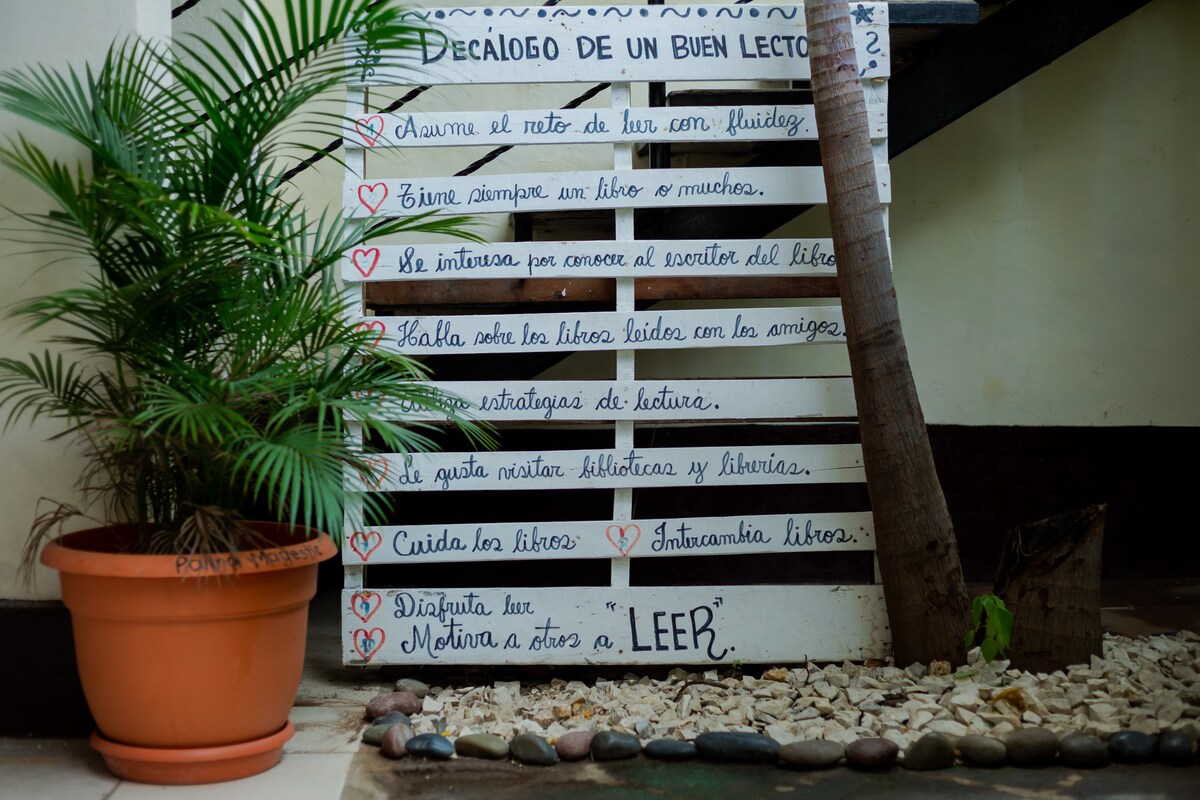 DECÁLOGO DE UN BUEN LECTO
1 Asume el reto de leer con fluidez.
Tiene siempre un libro o muchos.
Se interesa por conocer al escritor del libro
Habla sobre los libros leídos con los amigos.
estrategias de lectura.
Le gusta visitar bibliotecas y librerías.
Cuida los libros Intercambia libros.
Disfruta leer
10 Motiva a otros a "LEER".
Palma Majestic